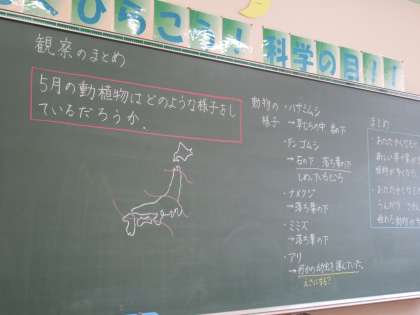 ひらこう! 科学の目!!
観察のまとめ
5月の動植物はどのような様子をし
ているだろうか。
動物の
様子
・ハサミムシ
→草むらの中 石の下
・ダンゴムシ
→石の下 落ち葉の下
しめっているところ
・ナメクジ
→落ち葉の下
・ミミズ
→落ち葉の下
・アリ
→何かの幼虫を運んでいた。
えさにする?
まとめ
・あたたかくなると